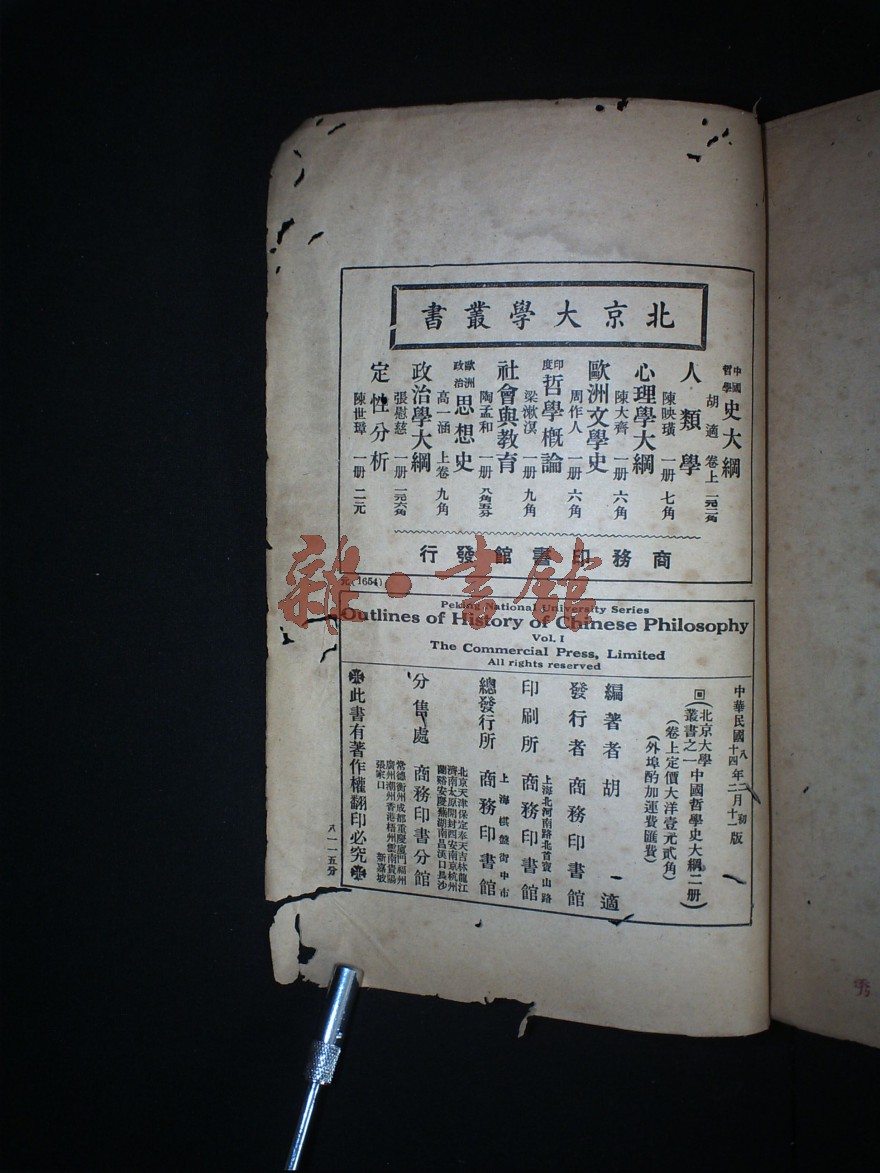 北京大學叢書
中國哲學史大綱 胡適 卷上 一元二角
人類學 陳映璜 一册 七角
心理學大綱 陳大齊 一册 六角
歐洲文學史 周作人 一册 六角
印度哲學概論 梁漱溟 一册 九角
社會與教育 陶孟和 一册 八角五分
歐洲政治思想史 高一涵 上卷 九角
政治學大綱 張慰慈 一册 一元六角
定性分析 陳世璋 一册 二元
商務印書館發行
元(1654)
Peking National University Series
Outlines of History of Chinese Philosophy
Vol. I
The Commercial Press, Limited
All rights reserved
中華民國八年二月初版
十四 十一
(北京大學叢書之一 中國哲學史大綱二册)
(卷上定價大洋壹元貳角)
(外埠酌加運費匯費)
編著者 胡適
發行者 商務印書館
印刷所 上海北河南路北首寶山路 商務印書館
總發行所 上海棋盤街中市 商務印書館
分售處 北京天津保定奉天吉林龍江
濟南太原開封西安南京杭州
蘭谿安慶蕪湖南昌漢口長沙
商務印書分館
常德衡州成都重慶廈門福州
廣州潮州香港梧州雲南貴陽
張家口 新嘉坡
此書有著作權翻印必究
八一一五分
雜·書館